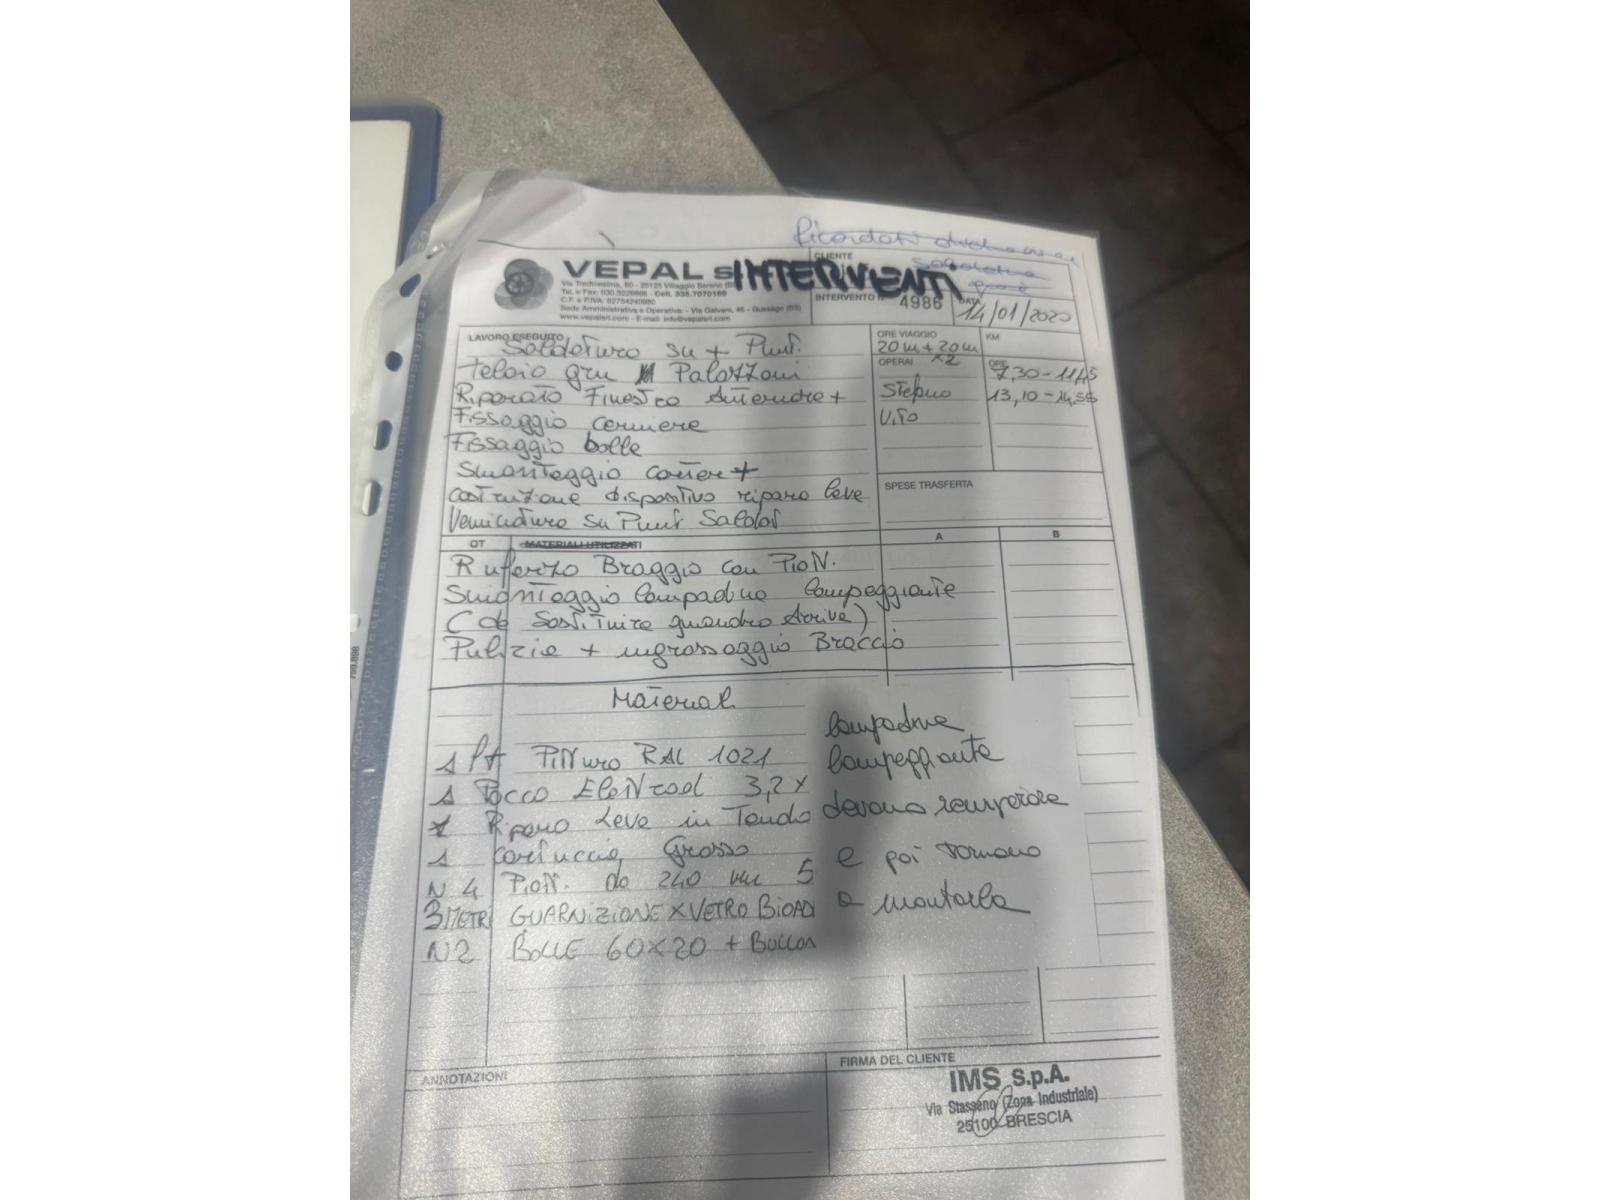 VEPAL s
INTERVENTI
CLIENTE
Via Tredicesima, 60 - 25125 Villaggio Sereno
Tel. e Fax: 030.3229888 - Cell. 335.7070169
C.F. e P.IVA: 02754240980
Sede Amministrativa e Operativa: - Via Galvani, 46 - Gussago (BS)
www.vepalsrl.com - E-mail: info@vepalsrl.com
INTERVENTO N° 4986
DATA 14/01/2020
LAVORO ESEGUITO
Saldature su + Punti
telaio gru Palazzani
Riparato Finestra Anteriore +
Fissaggio cerniere
Fissaggio bolle
Smontaggio carter +
costruzione dispositivo riparo leve
Verniciatura su Punti Saldati
ORE VIAGGIO
20 m + 20 m
x2
KM
OPERAI
Stefano
Vito
ORE
7,30 - 11,45
13,10 - 14,55
SPESE TRASFERTA
QT
MATERIALI UTILIZZATI
A
B
Rinforzo Braccio con Piatt.
Smontaggio lampadina lampeggiante
(da Sostituire quando Arriva)
Pulizia + ingrassaggio Braccio
Material
1 Pittura RAL 1021
1 Pacco Elettrod 3,2 x
1 Riparo Leve in Tondo
1 cartuccia Grasso
N 4 Piatt. da 240 5
3 METRI GUARNIZIONE X VETRO BIOAD
N 2 BOLLE 60X20 + Bullon
lampadina
lampeggiante
devono
e poi torniamo
a montarla
ANNOTAZIONI
FIRMA DEL CLIENTE
IMS S.p.A.
Via Stasseno (Zona Industriale)
25100 BRESCIA